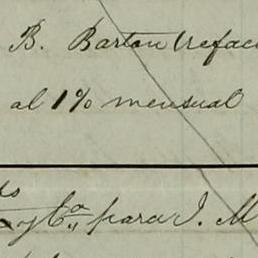 B. Barton (refac
al 1% mensual
y Ca, para J. M